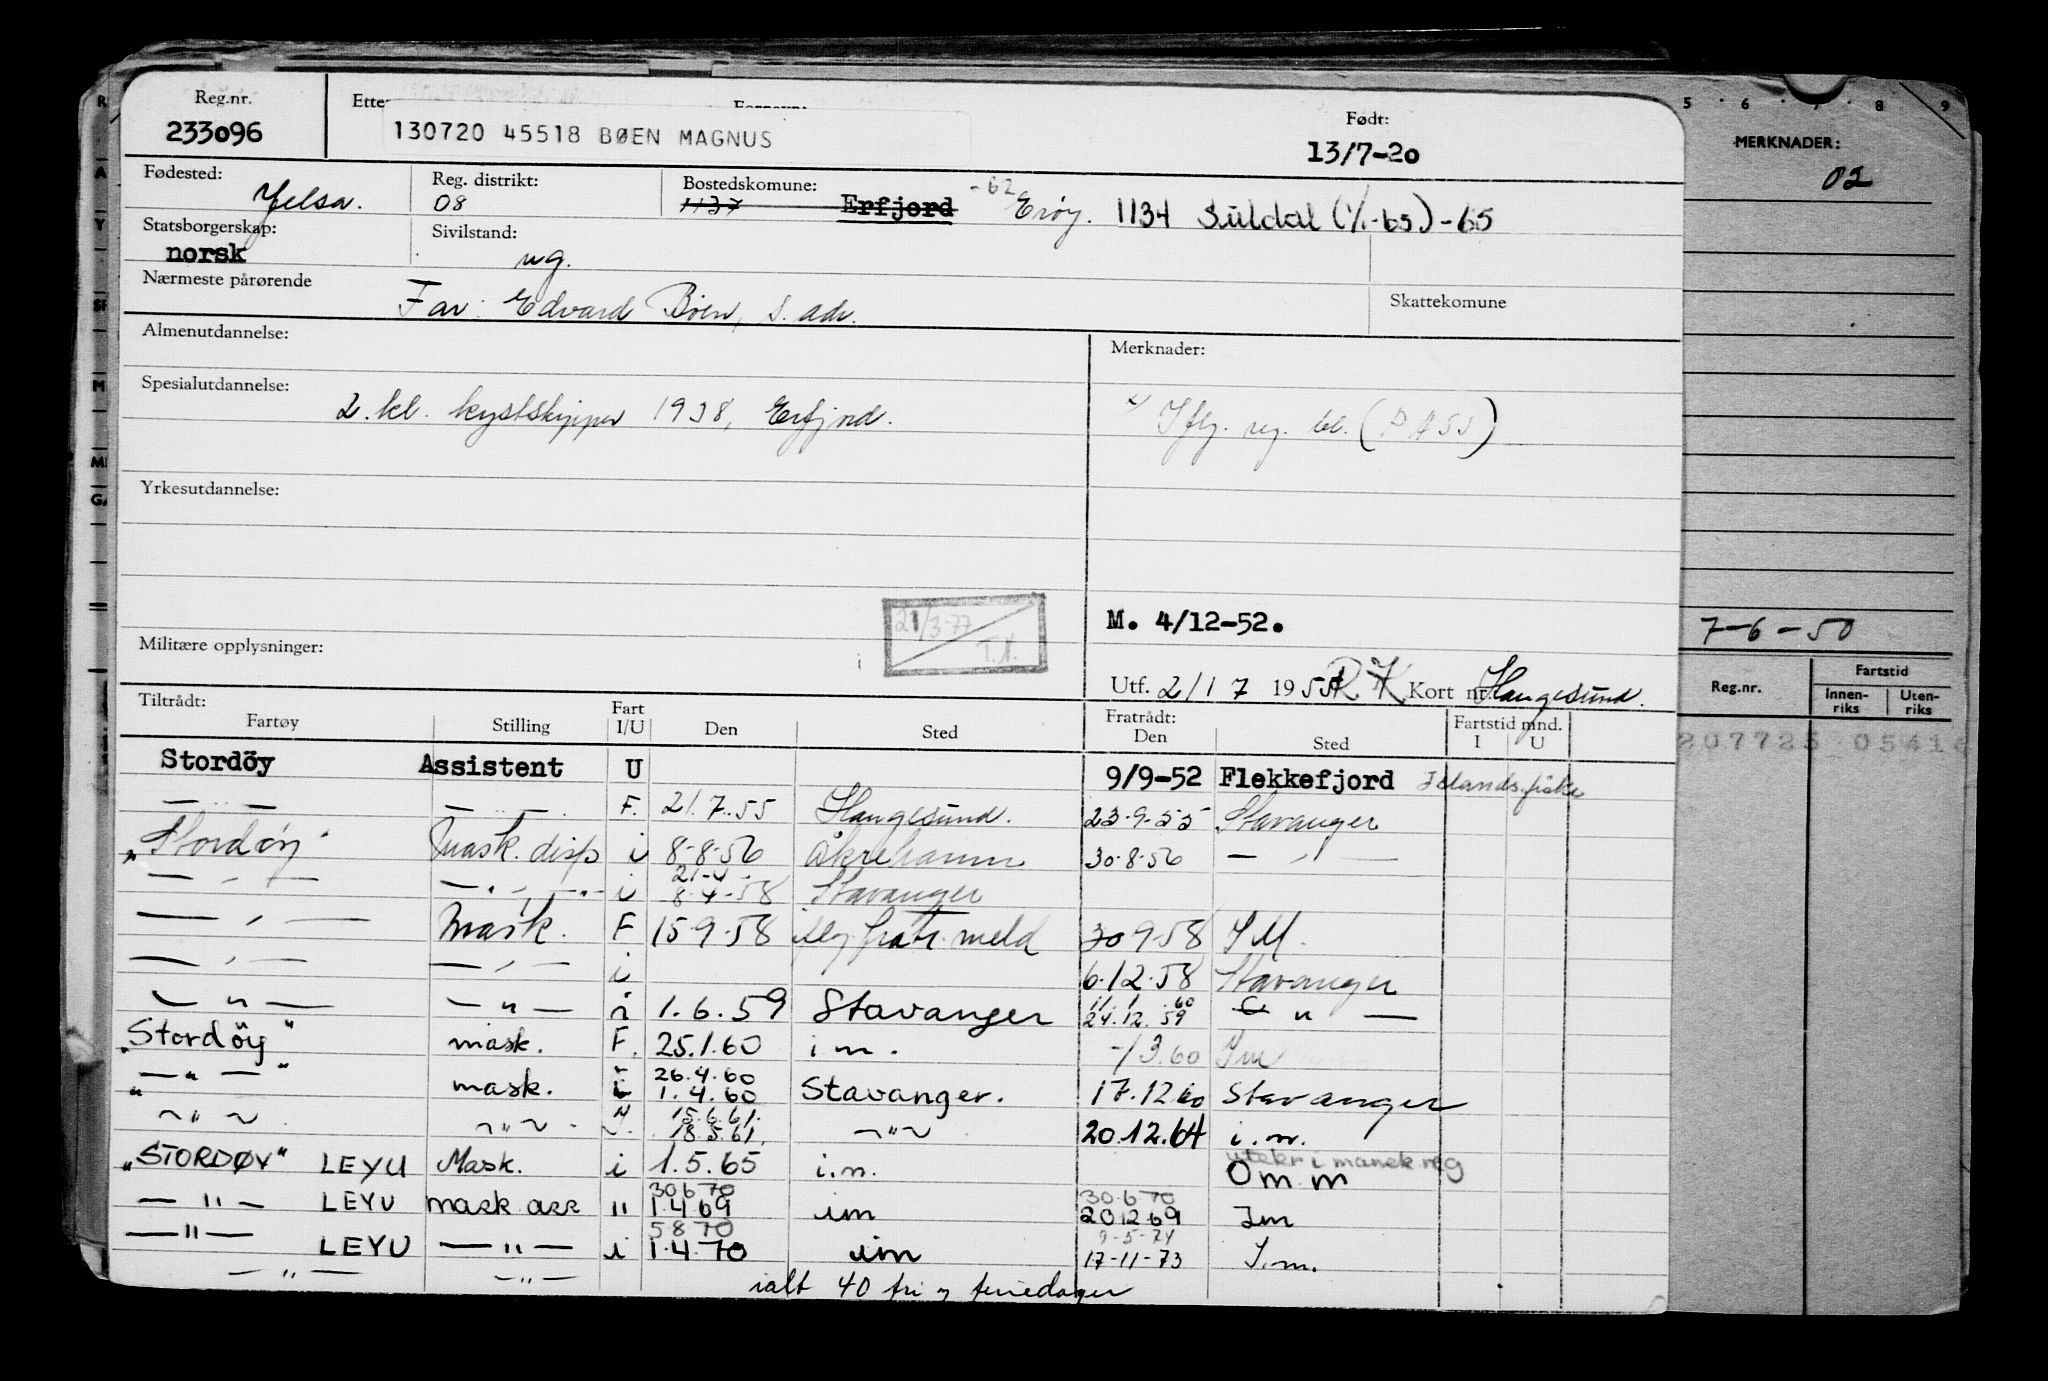 Reg.nr. Født: 5 · 6 · 7 · 8 9
233096 130720 45518 BØEN MAGNUS 13/7-20 MERKNADER:
02
Fødested: Reg. distrikt: Bostedskomune:
Jelsa. 08 1137 Erfjord -62 Erøy. 1134 Suldal (1/1-65)-65
Statsborgerskap: Sivilstand:
norsk ug.
Nærmeste pårørende Skattekomune
Far: Edvard Bøen, s. adr.
Almenutdannelse: Merknader:
Spesialutdannelse:
2. kl. kystskipper 1938, Erfjord. Iflg. reg. bl. (P A 55)
Yrkesutdannelse:
21/3-77 T.A.
M. 4/12-52. 7-6-50
Militære opplysninger:
Utf. 21/7 1955 RK Kort nr. Haugesund.
Fartstid
Reg.nr. Innen-riks Uten-riks
Tiltrådt: Fart Fratrådt: Fartstid mnd.
Fartøy Stilling I/U Den Sted Den Sted I U
Stordöy Assistent U 9/9-52 Flekkefjord Islandsfiske
— " — — " — F. 21.7.55 Haugesund. 23-9-55 Stavanger
"Stordøy" Mask. disp i 8-8-56 Åkrehamn 30-8-56 — " —
21-4-
— " — — " — i 8-4-58 Stavanger
— " — Mask. F 15-9-58 iflg. fratr. meld 30-9-58 I M.
— " — — " — i 6.12.58 Stavanger
11.1.60
— " — — " — i 1.6.59 Stavanger 24.12.59 — " —
"Stordöy" mask. F. 25.1.60 i m. -/3.60 Im
26.4.60
— " — mask. i 1.4.60 Stavanger. 17.12.60 Stavanger
15.6.61.
— " — — " — 18.5.61. — " — 20.12.64 i. m.
"STORDØY" LEYU Mask. i 1.5.65 i.m. Om m
30 6 70 30 6 70
— " — LEYU mask ass " 1.4 69 im 20 12 69 Im
5 8 70 9-5-74
— " — LEYU — " — i 1.4.70 im 17-11-73 I.m.
— " — — " — ialt 40 fri og feriedager